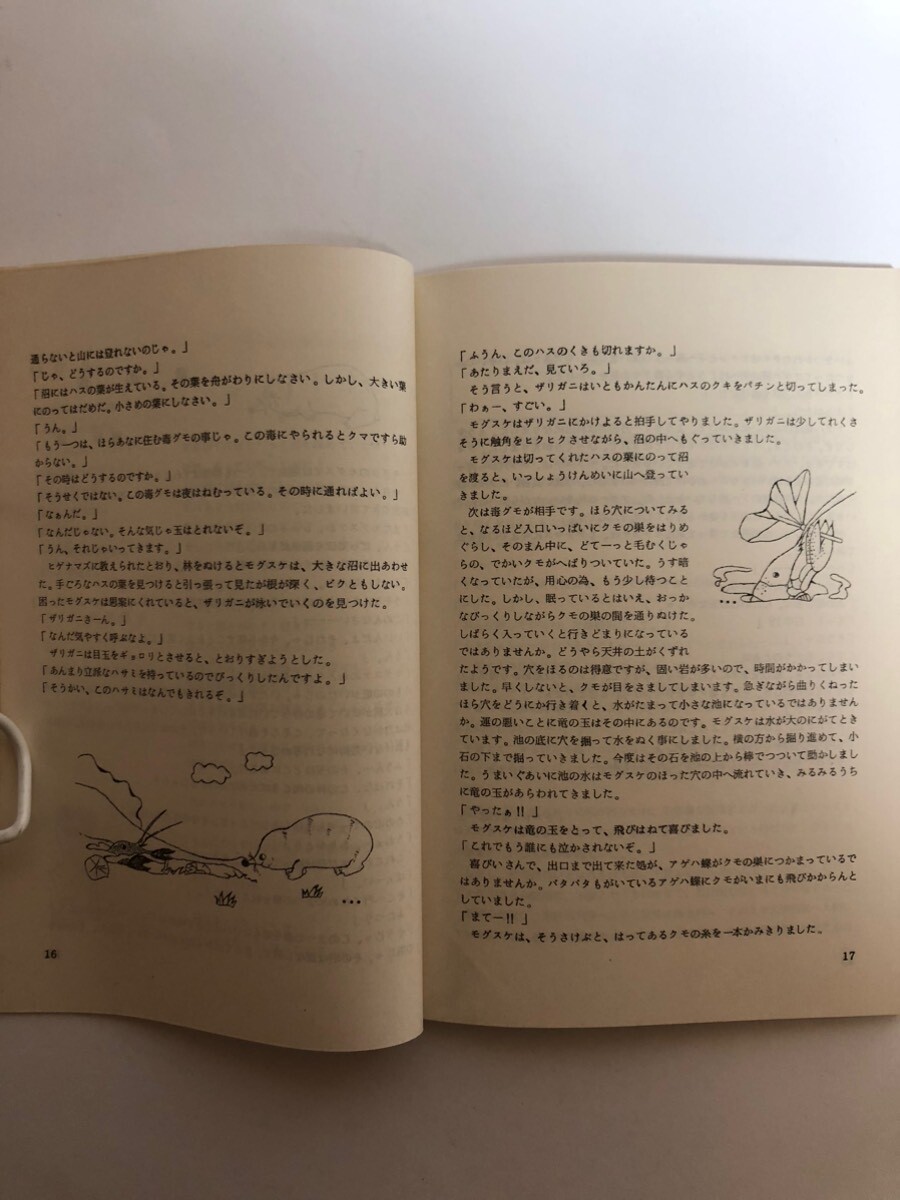 通らないと山には登れないのじゃ。」
「じゃ、どうするのですか。」
「沼にはハスの葉が生えている。その葉を舟がわりにしなさい。しかし、大きい葉
にのってはだめだ。小さめの葉にしなさい。」
「うん。」
「もう一つは、ほらあなに住む毒グモの事じゃ。この毒にやられるとクマですら助
からない。」
「その時はどうするのですか。」
「そうせくではない。この毒グモは夜はねむっている。その時に通ればよい。」
「なぁんだ。」
「なんだじゃない。そんな気じゃ玉はとれないぞ。」
「うん、それじゃいってきます。」
ヒゲナマズに教えられたとおり、林をぬけるとモグスケは、大きな沼に出あわせ
た。手ごろなハスの葉を見つけると引っ張って見たが根が深く、ビクともしない。
困ったモグスケは思案にくれていると、ザリガニが泳いでいくのを見つけた。
「ザリガニさーん。」
「なんだ気やすく呼ぶなよ。」
ザリガニは目玉をギョロリとさせると、とおりすぎようとした。
「あんまり立派なハサミを持っているのでびっくりしたんですよ。」
「そうかい、このハサミはなんでもきれるぞ。」
16
「ふうん、このハスのくきも切れますか。」
「あたりまえだ、見ていろ。」
そう言うと、ザリガニはいともかんたんにハスのクキをパチンと切ってしまった。
「わぁー、すごい。」
モグスケはザリガニにかけよると拍手してやりました。ザリガニは少してれくさ
そうに触角をヒクヒクさせながら、沼の中へもぐっていきました。
モグスケは切ってくれたハスの葉にのって沼
を渡ると、いっしょうけんめいに山へ登ってい
きました。
次は毒グモが相手です。ほら穴についてみる
と、なるほど入口いっぱいにクモの巣をはりめ
ぐらし、そのまん中に、どてーっと毛むくじゃ
らの、でかいクモがへばりついていた。うす暗
くなっていたが、用心の為、もう少し待つこと
にした。しかし、眠っているとはいえ、おっか
なびっくりしながらクモの巣の間を通りぬけた。
しばらく入っていくと行きどまりになっている
ではありませんか。どうやら天井の土がくずれ
たようです。穴をほるのは得意ですが、固い岩が多いので、時間がかかってしまい
ました。早くしないと、クモが目をさましてしまいます。急ぎながら曲りくねった
ほら穴をどうにか行き着くと、水がたまって小さな池になっているではありません
か。運の悪いことに竜の玉はその中にあるのです。モグスケは水が大のにがてとき
ています。池の底に穴を掘って水をぬく事にしました。横の方から掘り進めて、小
石の下まで掘っていきました。今度はその石を池の上から棒でつついて動かしまし
た。うまいぐあいに池の水はモグスケのほった穴の中へ流れていき、みるみるうち
に竜の玉があらわれてきました。
「やったぁ!!」
モグスケは竜の玉をとって、飛びはねて喜びました。
「これでもう誰にも泣かされないぞ。」
喜びいさんで、出口まで出て来た処が、アゲハ蝶がクモの巣につかまっているで
はありませんか。バタバタもがいているアゲハ蝶にクモがいまにも飛びかからんと
していました。
「まてー!!」
モグスケは、そうさけぶと、はってあるクモの糸を一本かみきりました。
17